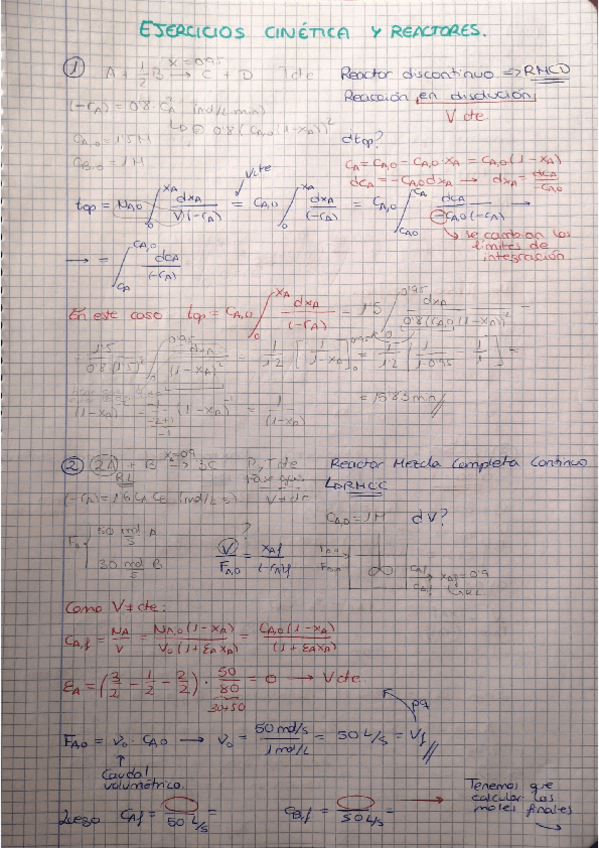 EJERCICIOS CINÉTICA Y REACTORES.
① A + 1/2 B →(X = 0'95) C + D T cte Reactor discontinuo ⇒ RMCD
(-rA) = 0'8 · CA² (mol/L·min) Reacción en disolución,
↳ 0'8 (CA,0 (1-XA))² V cte.
CA,0 = 1'5M
CB,0 = 1M
¿top?
CA = CA,0 - CA,0·XA = CA,0 (1-XA)
dCA = -CA,0 dXA → dXA = dCA/-CA,0
V cte
top = NA,0 ∫₀^XA dXA/V(-rA) = CA,0 ∫₀^XA dXA/(-rA) = CA,0 ∫CA,0^CA dCA/-CA,0(-rA) →
↳ se cambian los límites de integración
→ = ∫CA^CA,0 dCA/(-rA)
En este caso top = CA,0 ∫₀^XA dXA/(-rA) = 1'5 ∫₀^0'95 dXA/0'8(CA,0 (1-XA))² =
= 1'5/0'8(1'5)² ∫₀^0'95 dXA/(1-XA)² = 1/1'2 [1/1-XA]₀^0'95 = 1/1'2 [1/1-0'95 - 1/1] =
(1-XA)⁻²⁺¹/-2+1 (1-XA)⁻¹ = 1/(1-XA) = 15'83 min//
② 2A + B →(X=0'9) 3C P, T cte Reactor Mezcla Completa Continuo
RL fase gas ↳ RMCC
V ≠ cte
CA,0 = 1M ¿V?
50 mol/s A
30 mol/s B
V/FA,0 = XAf/(-rA)f
CAf
CBf
XAf = 0'9
Como V ≠ cte:
CA,f = NA/V = NA,0 (1-XA)/V0 (1+εAXA) = CA,0 (1-XA)/(1+εAXA)
εA = (3/2 - 1/2 - 2/2) · 50/80 = 0 → V cte
30+50
FA,0 = v0 · CA,0 → v0 = 50 mol/s / 1 mol/L = 50 L/s = vf//
pq
Caudal volumétrico.
Luego CA,f = /50 L/s = CB,f = /50 L/s = → Tenemos que calcular los moles finales